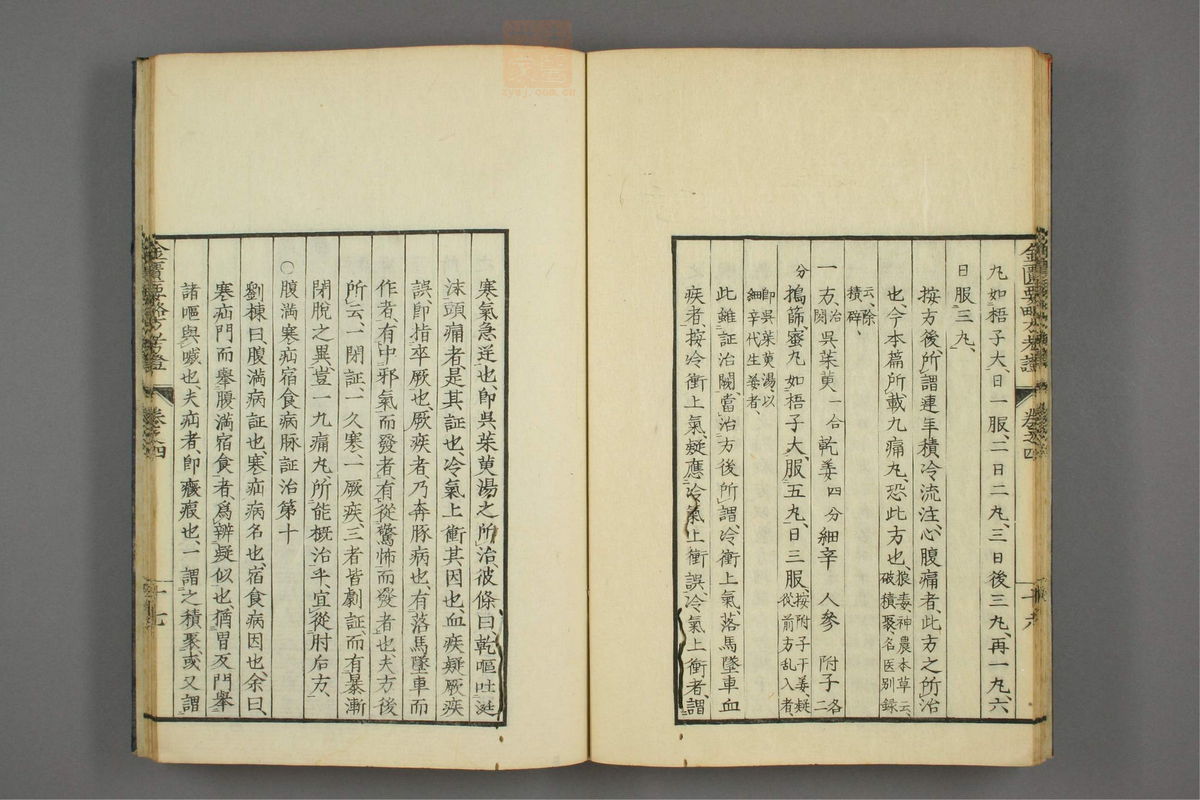 丸、如梧子大、日一服、二日二丸、三日後三丸、再一丸、六
日服三丸、
按方後、所謂連年積冷流注、心腹痛者、此方之所治
也、今本篇所載九痛丸、恐此方也、狼毒神農本草云、破積聚、名医別録
云、除積癖、
一方、治闕 呉茱萸一合 乾姜四分 細辛 人參 附子各二
分 搗篩、蜜丸如梧子大、服五丸、日三服、按附子干姜疑從前方乱入者、
即呉茱萸湯、以細辛代生姜者、
此雖証治闕、當治方後所謂、冷衝上氣、落馬墜車血
疾者、按冷衝上氣、疑應冷氣上衝誤、冷氣上衝者、謂
金匱要略方考證 卷之四
寒氣急逆也、即呉茱萸湯之所治、彼條曰、乾嘔吐涎
沫頭痛者、是其証也、冷氣上衝其因也、血疾疑厥疾
誤、即指卒厥也、厥疾者、乃奔豚病也、有落馬墜車而
作者、有中邪氣而發者、有從驚怖而發者也、夫方後
所云、一閉証、一久寒、一厥疾、三者皆劇証而有暴漸
閉脫之異、豈一九痛丸所能概治乎、宜從肘后方、
○腹滿寒疝宿食病脉証治第十
劉棟曰、腹滿病証也、寒疝病名也、宿食病因也、余曰、
寒疝門而舉腹滿宿食者、爲辨疑似也、猶胃反門舉
諸嘔與噦也、夫疝者、即癥瘕也、一謂之積聚、或又謂
金匱要略方考證 卷之四 十七